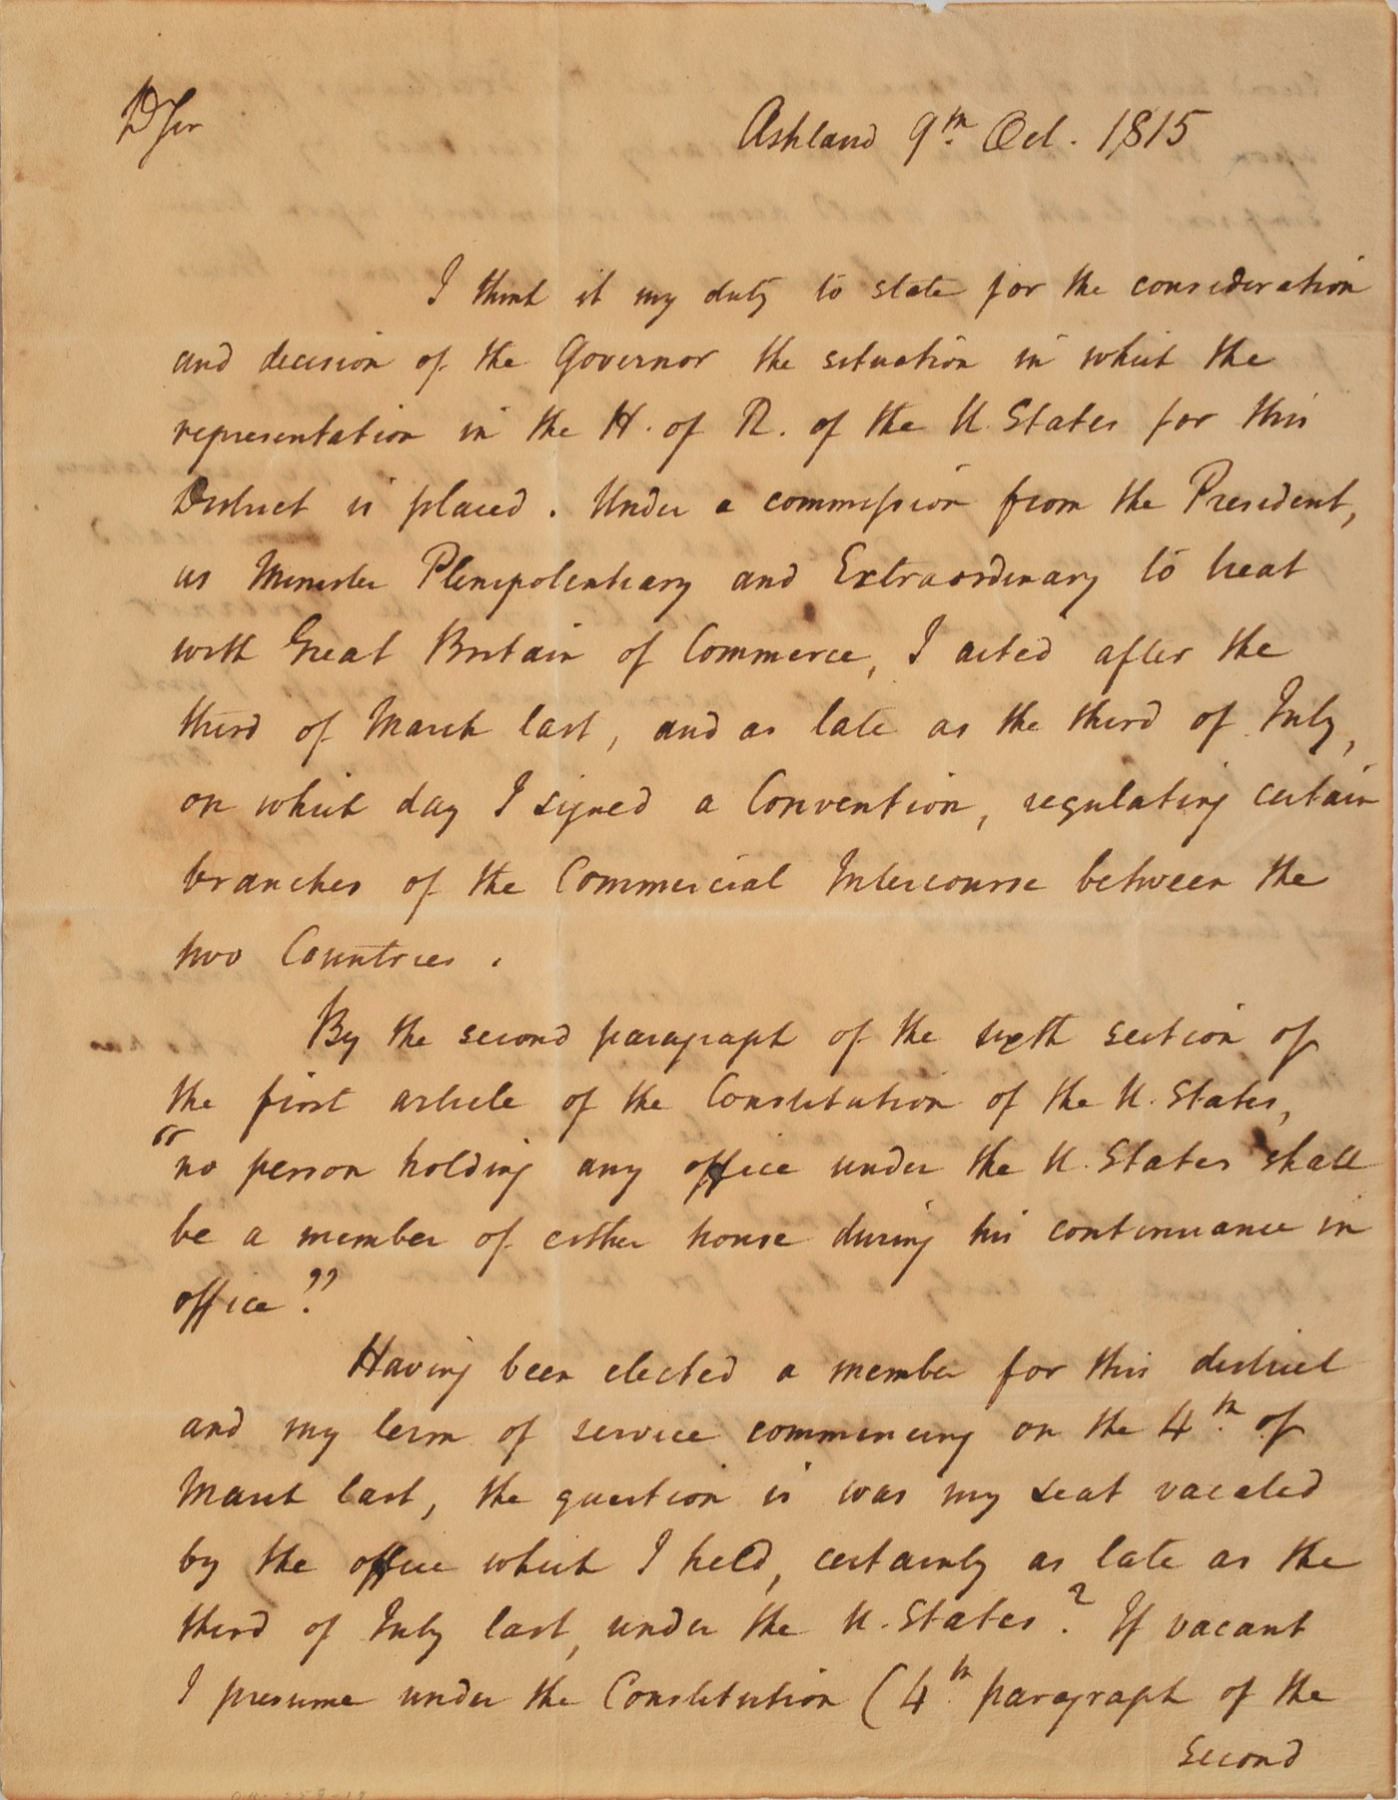 D Sir
Ashland 9th. Oct. 1815
I think it my duty to state for the consideration
and decision of the Governor the situation in which the
representation in the H. of R. of the U. States for this
District is placed. Under a commission from the President,
as Minister Plenipotentiary and Extraordinary to treat
with Great Britain of Commerce, I acted after the
third of March last, and as late as the third of July,
on which day I signed a Convention, regulating certain
branches of the Commercial Intercourse between the
two Countries.
By the second paragraph of the sixth section of
the first article of the Constitution of the U. States,
"no person holding any office under the U. States shall
be a member of either house during his continuance in
office."
Having been elected a member for this district
and my term of service commencing on the 4th. of
March last, the question is was my seat vacated
by the office which I held, certainly as late as the
third of July last, under the U. States? If vacant
I presume under the Constitution (4th. paragraph of the
second